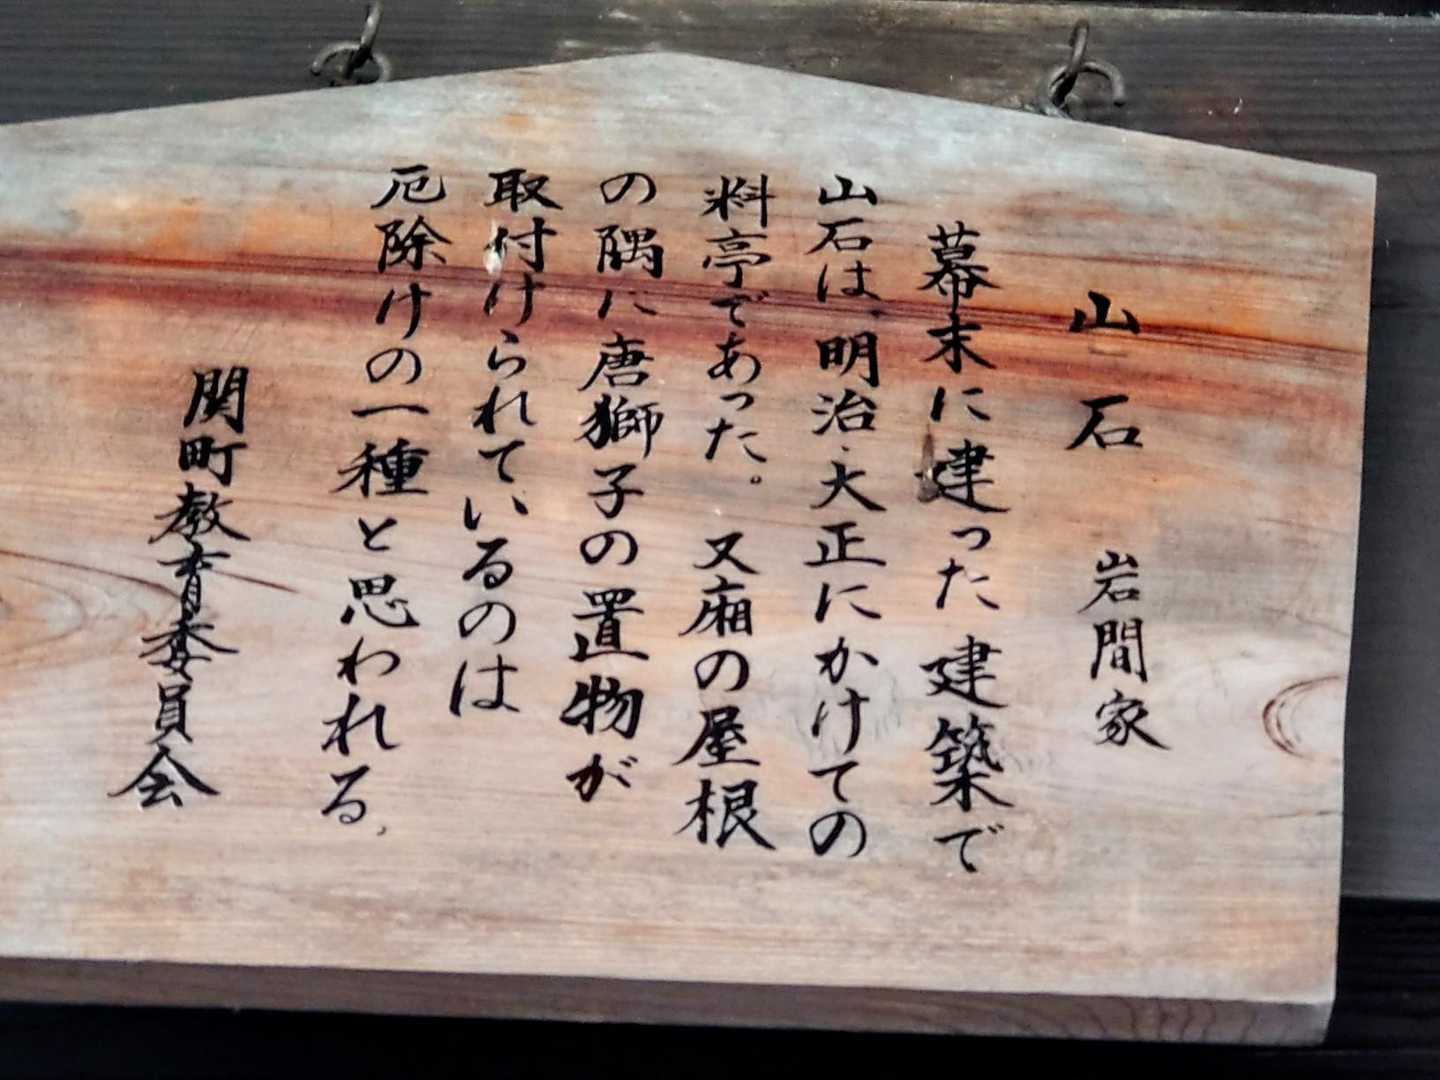 山石　岩間家
幕末に建った建築で
山石は、明治・大正にかけての
料亭であった。又廂の屋根
の隅に唐獅子の置物が
取付けられているのは
厄除けの一種と思われる。
関町教育委員会